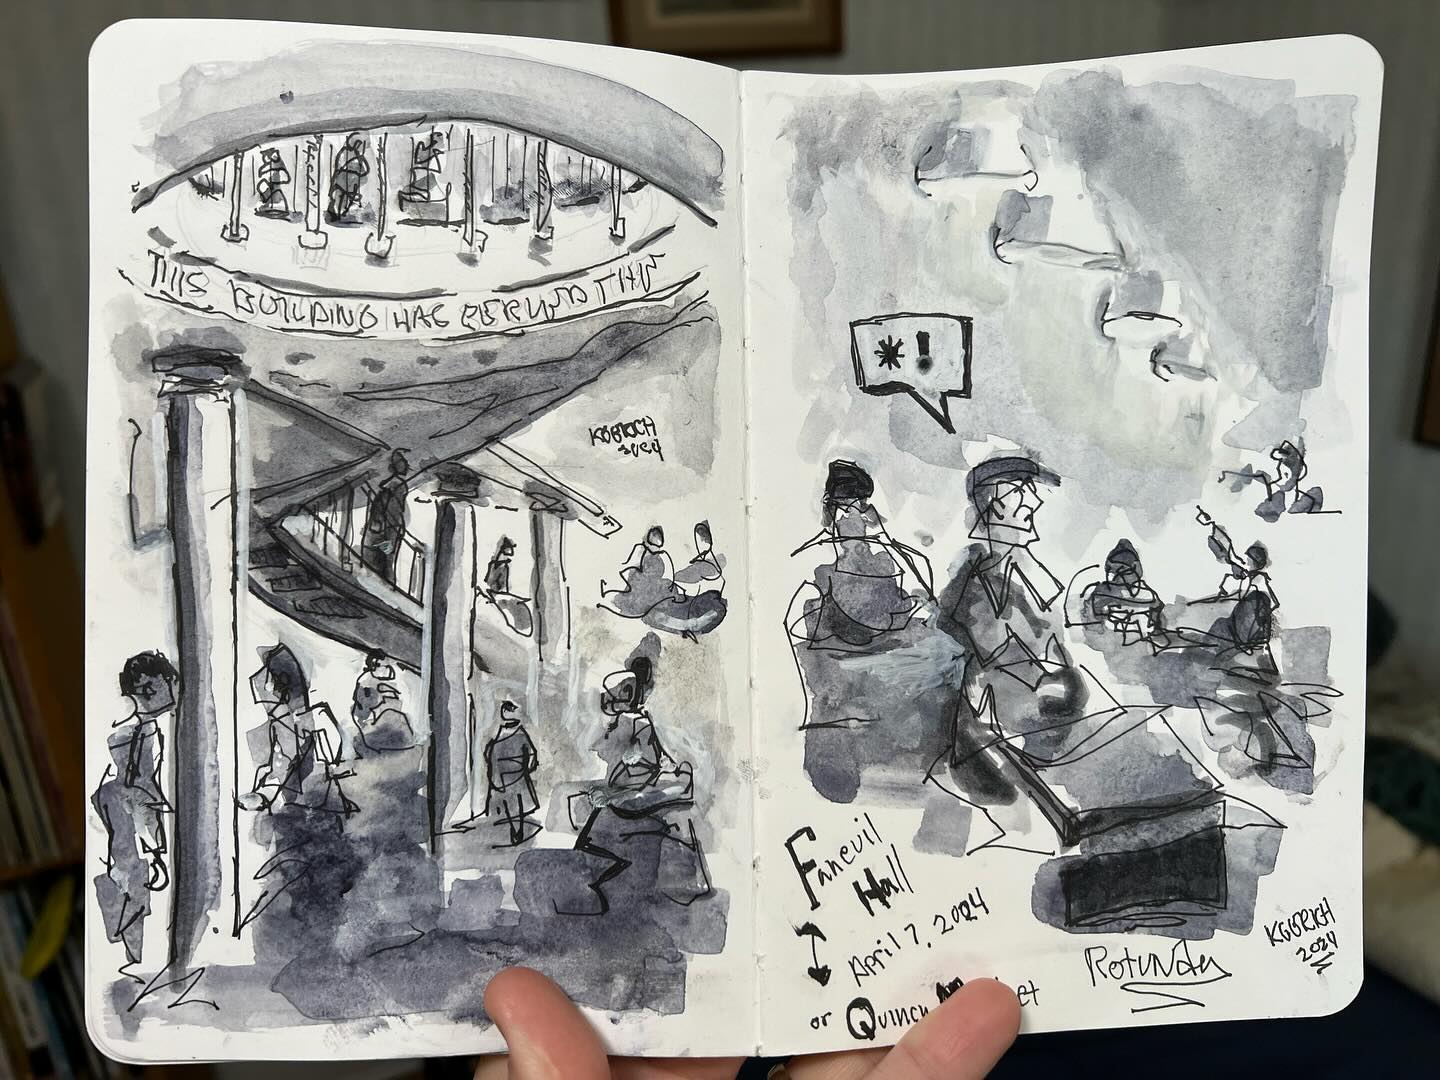 THIS BUILDING HAS
KGORICH
2024
* !
Faneuil
Hall
April 7, 2024
or Quincy
Rotunda
KGORICH
2024